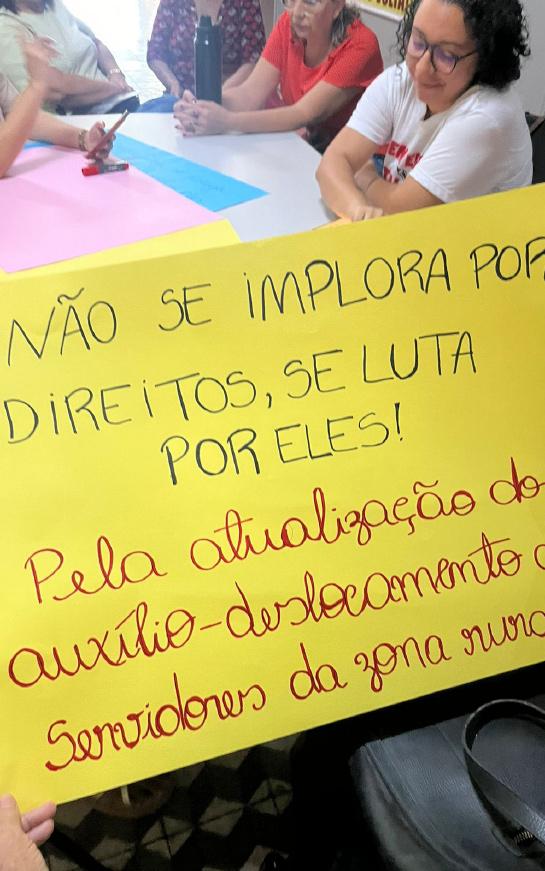 NÃO SE IMPLORA POR
DIREITOS, SE LUTA
POR ELES!
Pela atualização do
auxílio-deslocamento
Servidores da zona rura